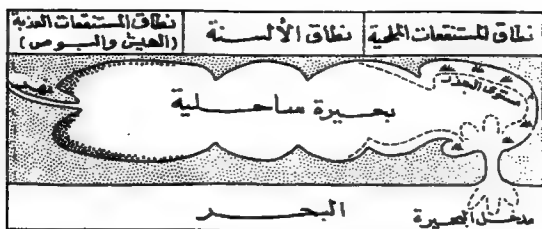 نطاق المستنقعات الملحية
نطاق الألسنة
نطاق المستنقعات العذبة
(الهيش والبوص)
مستوى الجذر
نهر
بحيرة ساحلية
البحر
مدخل البحيرة